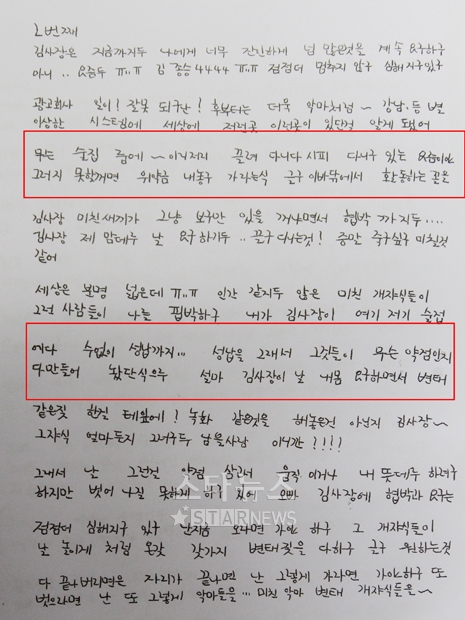 2번째
김사장은 지금까지두 나에게 너무 잔인하게 넘 많은것을 계속 요구하구
아니.. 요즘두 ㅠ.,ㅠ 김 종승 4444 ㅠ.,ㅠ 점점더 멈추지 않구 심해지구있구
광고회사 일이! 잘못 되구난! 후부터는 더욱 악마처럼~ 강남.등 별
이상한 시스템에 세상에 저런곳 이런곳이 있단걸 알게 됐어
무슨 술집 룸에~ 이리저리 끌려 다니다 시피 다니구 있는 요즘이야
그러지 못할꺼면 위약금 내놓구 가라는식 근구 이바닦에서 활동하는 꼴은
김사장 미친새끼가 그냥 보구만 있을 꺼냐면서 협박 까지두....
김사장 제 맘데루 날 요구하기두.. 끈구 다니는것! 증만 죽구싶구 미친것
같어
세상은 분명 넓은데 ㅠ.,ㅠ 인간 같지두 않은 미친 개쟈식들이
그런 사람들이 나를 핍박하구 내가 김사장이 여기 저기 술접
에다 수없이 성납까지... 성납을 그래서 그것들이 무슨 약점인지
다만들어 놨단식으루 설마 김사장이 날 내몸 요구하면서 변태
같은짓 한질 테잎에! 녹화 같은것을 해놓은건 아닌지 김사장~
그쟈식 얼마든지 그러구두 남을사남 이니깐!!!!
그래서 난 그런걸 약점 삼고너 움직이거나 내 뜻데루 하려구
하지만 벗어 나질 못하게 하구 있어 오빠 김사장에 협박과 요구는
점점더 심해지구 있구 난지금 오라면 가야 하구 그 개쟈식들이
날 놀이게 처럼 온갖 갖가지 변태짓을 다하구 근구 원하는것
다 끝나버리면은 자리가 끝나면 난 그렇게 가라면 가야하구 또
벗으라면 난 또 그렇게 악마들을... 미친 악마 변태 개쟈식들을~
스타뉴스
STARNEWS